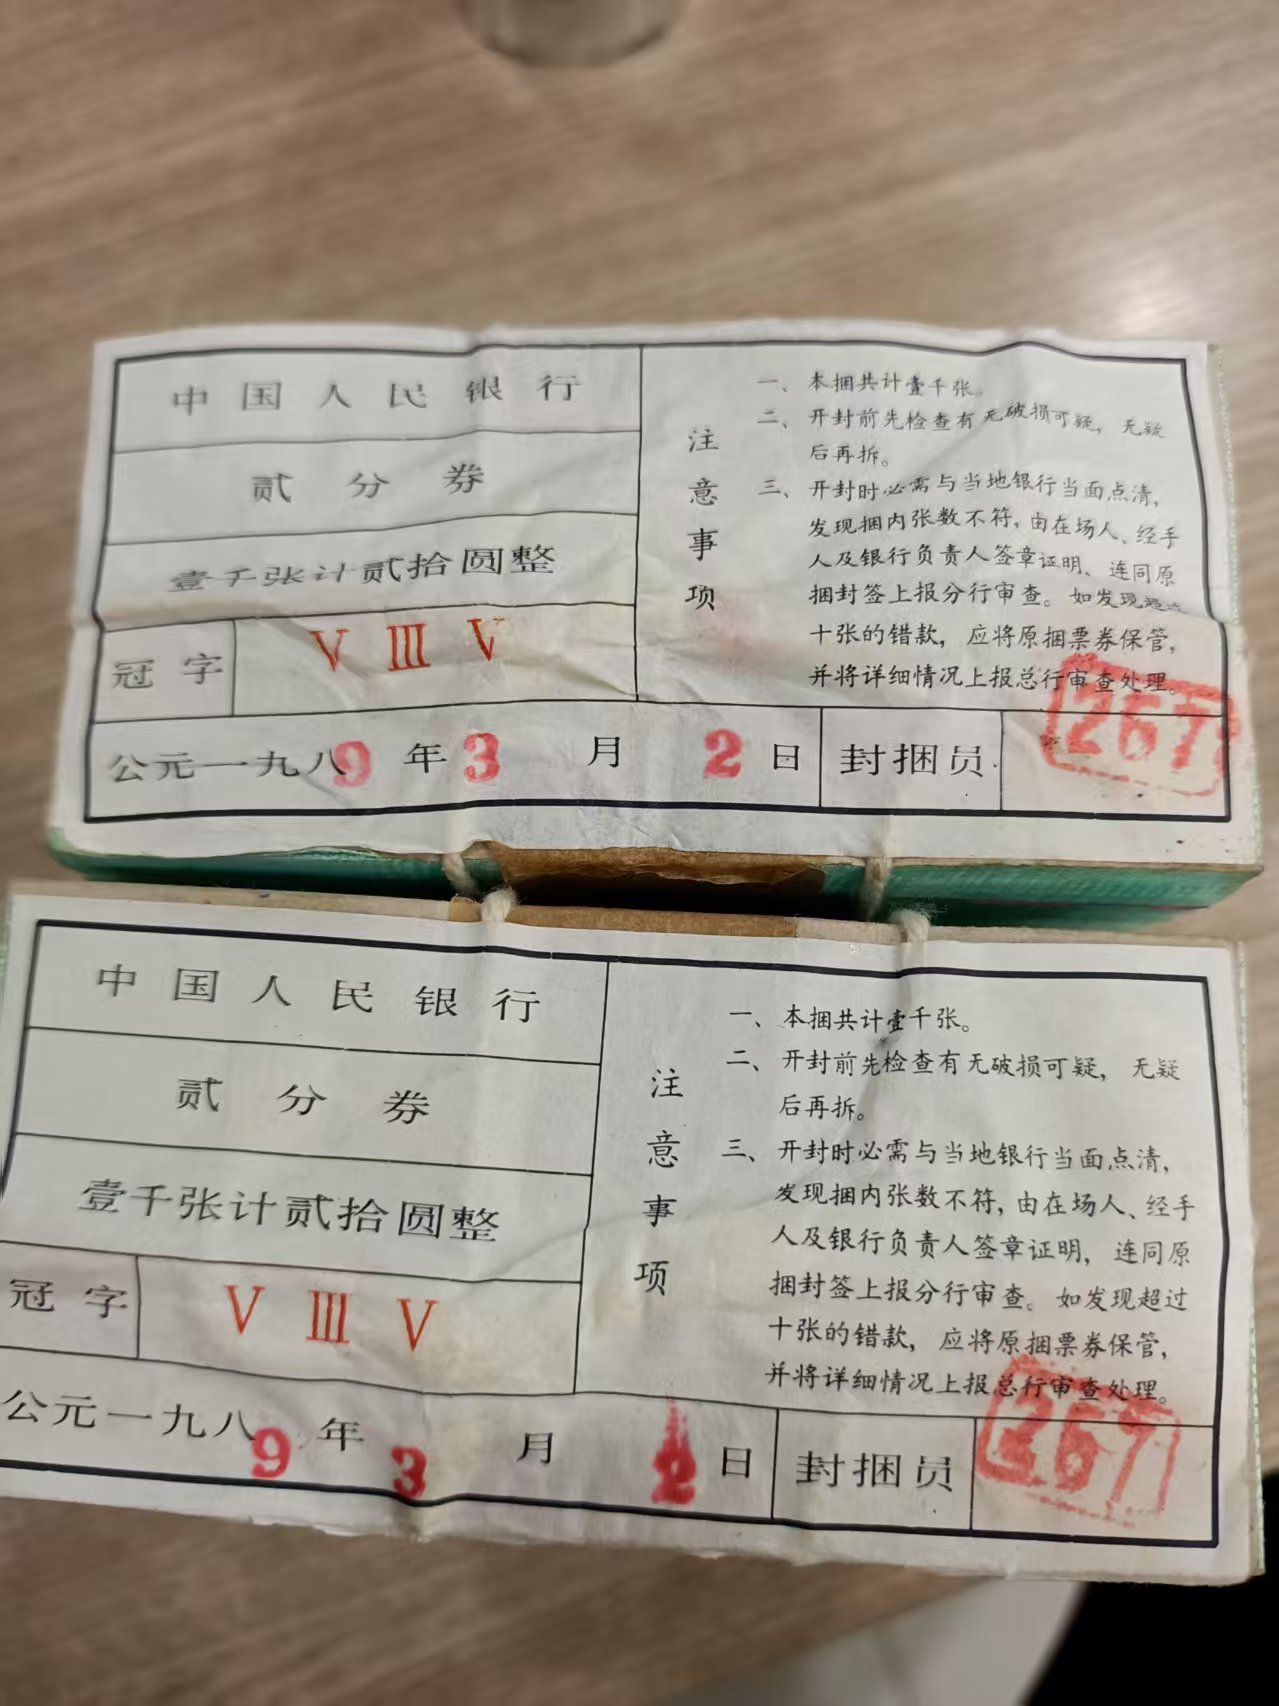 中国人民银行
贰分券
壹千张计贰拾圆整
冠字 V III V
公元一九八9年3月2日
封捆员 267
注意事项
一、本捆共计壹千张。
二、开封前先检查有无破损可疑，无疑
后再拆。
三、开封时必需与当地银行当面点清，
发现捆内张数不符，由在场人、经手
人及银行负责人签章证明、连同原
捆封签上报分行审查。如发现超过
十张的错款，应将原捆票券保管，
并将详细情况上报总行审查处理。
中国人民银行
贰分券
壹千张计贰拾圆整
冠字 V III V
公元一九八9年3月2日
封捆员 267
注意事项
一、本捆共计壹千张。
二、开封前先检查有无破损可疑，无疑
后再拆。
三、开封时必需与当地银行当面点清，
发现捆内张数不符，由在场人、经手
人及银行负责人签章证明，连同原
捆封签上报分行审查。如发现超过
十张的错款，应将原捆票券保管，
并将详细情况上报总行审查处理。